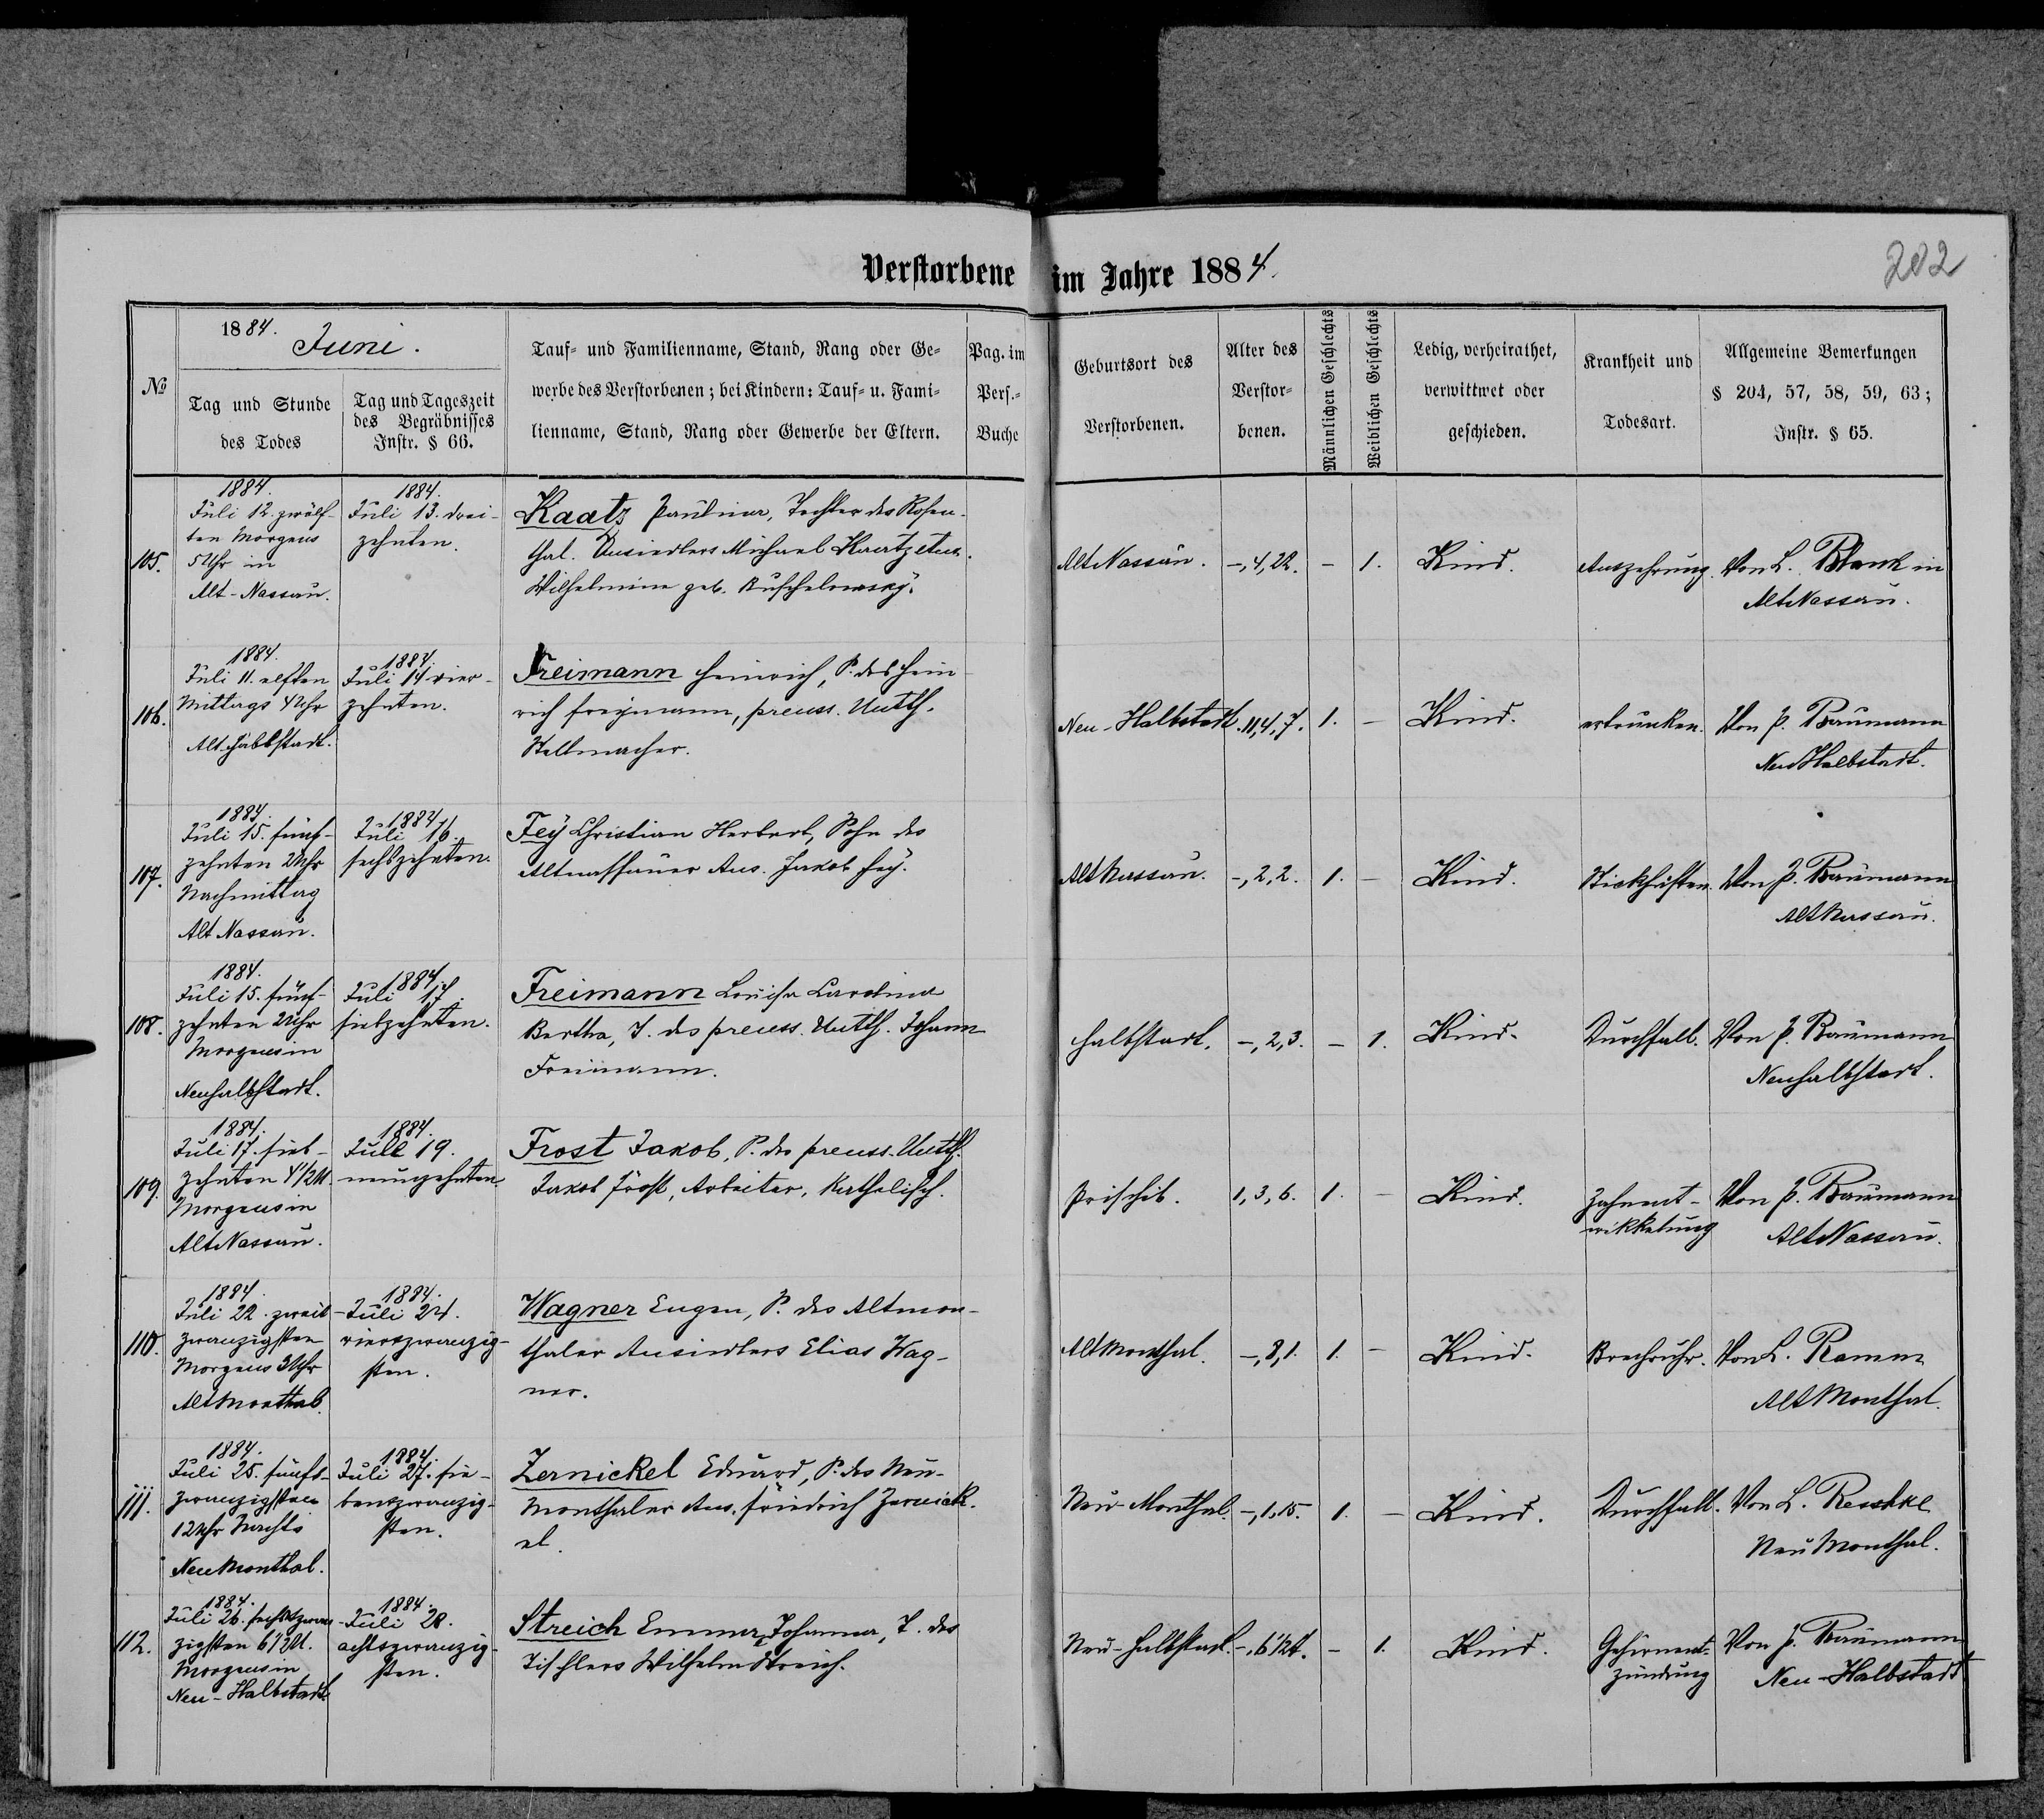 Verstorbene im Jahre 1884.
202
№
1884.
Juni.
Tag und Stunde
des Todes
Tag und Tageszeit
des Begräbnisses
Instr. § 66.
Tauf- und Familienname, Stand, Rang oder Ge-
werbe des Verstorbenen; bei Kindern: Tauf- u. Fami-
lienname, Stand, Rang oder Gewerbe der Eltern.
Pag. im
Pers.-
Buche
Geburtsort des
Verstorbenen.
Alter des
Verstor-
benen.
Männlichen Geschlechts
Weiblichen Geschlechts
Ledig, verheirathet,
verwittwet oder
geschieden.
Krankheit und
Todesart.
Allgemeine Bemerkungen
§ 204, 57, 58, 59, 63;
Instr. § 65.
105.
1884.
Juli 12. zwölf-
ten Morgens
5 Uhr in
Alt-Nassau.
1884.
Juli 13. drei-
zehnten.
Kaatz Paulina, Tochter des Rosen-
thal. Ansiedlers Michael Kaatz
Wilhelmine geb. Buschelowsky.
Alt Nassau.
-, 4, 22.
-
1.
Kind.
Auszehrung.
Von L. Blank in
Alt Nassau.
106.
1884.
Juli 11. elften
Mittags 4 Uhr
Alt-Halbstadt.
1884.
Juli 14 vier-
zehnten.
Freimann Heinrich, S. des Hein
rich Freymann, preuss. Unth.
Stellmacher.
Neu-Halbstadt.
11, 4, 7.
1.
-
Kind.
ertrunken.
Von P. Baumann
Neu Halbstadt.
107.
1884.
Juli 15. fünf-
zehnten 2 Uhr
Nachmittag
Alt Nassau.
1884.
Juli 16.
sechszehnten.
Fey Christian Herbert, Sohn des
Altnassauer Ans. Jakob Fey.
Alt Nassau.
-, 2, 2.
1.
-
Kind.
Stickhusten.
Von P. Baumann
Alt Nassau.
108.
1884.
Juli 15. fünf-
zehnten 2 Uhr
Morgens in
Neuhalbstadt.
1884.
Juli 17.
siebzehnten.
Freimann Louisa Carolina
Bertha, T. des preuss. Unth. Johann
Freimann.
Halbstadt.
-, 2, 3.
-
1.
Kind.
Durchfall.
Von P. Baumann
Neuhalbstadt.
109.
1884.
Juli 17. sieb-
zehnten 4 1/2 U.
Morgens in
Alt Nassau.
1884.
Juli 19.
neunzehnten.
Frost Jakob, S. des preuss. Unth.
Jakob Frost, Arbeiter, Katholisch.
Prischib.
1, 3, 6.
1.
-
Kind.
Zahnent-
wikkelung
Von P. Baumann
Alt Nassau.
110.
1884.
Juli 22. zweit
zwanzigsten
Morgens 3 Uhr
Alt Monthal.
1884.
Juli 24.
vierzwanzig-
sten.
Wagner Eugen, S. des Altmon-
thaler Ansiedlers Elias Wag-
ner.
Alt Monthal.
-, 8, 1.
1.
-
Kind.
Brechruhr.
Von L. Ramm
Alt Monthal.
111.
1884.
Juli 25. fünft-
zwanzigsten
12 Uhr Nachts
Neu Monthal.
1884.
Juli 27. sie-
benzwanzig-
sten.
Zernickel Eduard, S. des Neu-
Monthaler Ans. Friedrich Zernick-
el.
Neu-Monthal.
-, 1, 15.
1.
-
Kind.
Durchfall.
Von L. Reschke
Neu Monthal.
112.
1884.
Juli 26. sechszwan
zigsten 6 1/2 U.
Morgens in
Neu-Halbstadt
1884.
Juli 28.
achtszwanzig-
sten.
Streich Emma, Johanna, T. des
Tischlers Wilhelm Streich.
Neu-Halbstadt.
-, 6 1/2 t.
-
1.
Kind.
Gehirnent-
zündung
Von P. Baumann
Neu-Halbstadt